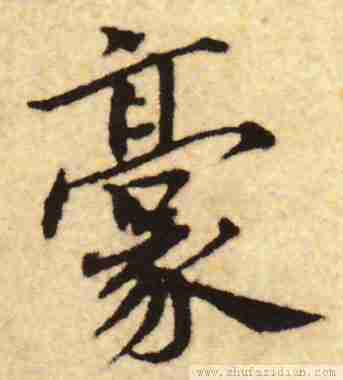 豪
www.zhufazidian.com